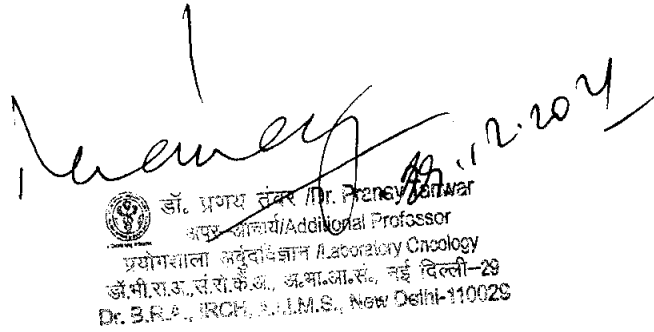 डॉ. प्रणय तंवर /Dr. Pranay Tanwar
अपर आचार्य/Additional Professor
प्रयोगशाला अर्बुदविज्ञान /Laboratory Oncology
डॉ.भी.रा.अ.,सं.रो.कैं.अ., अ.भा.आ.सं., नई दिल्ली-29
Dr. B.R.A., IRCH, A.I.I.M.S., New Delhi-110029